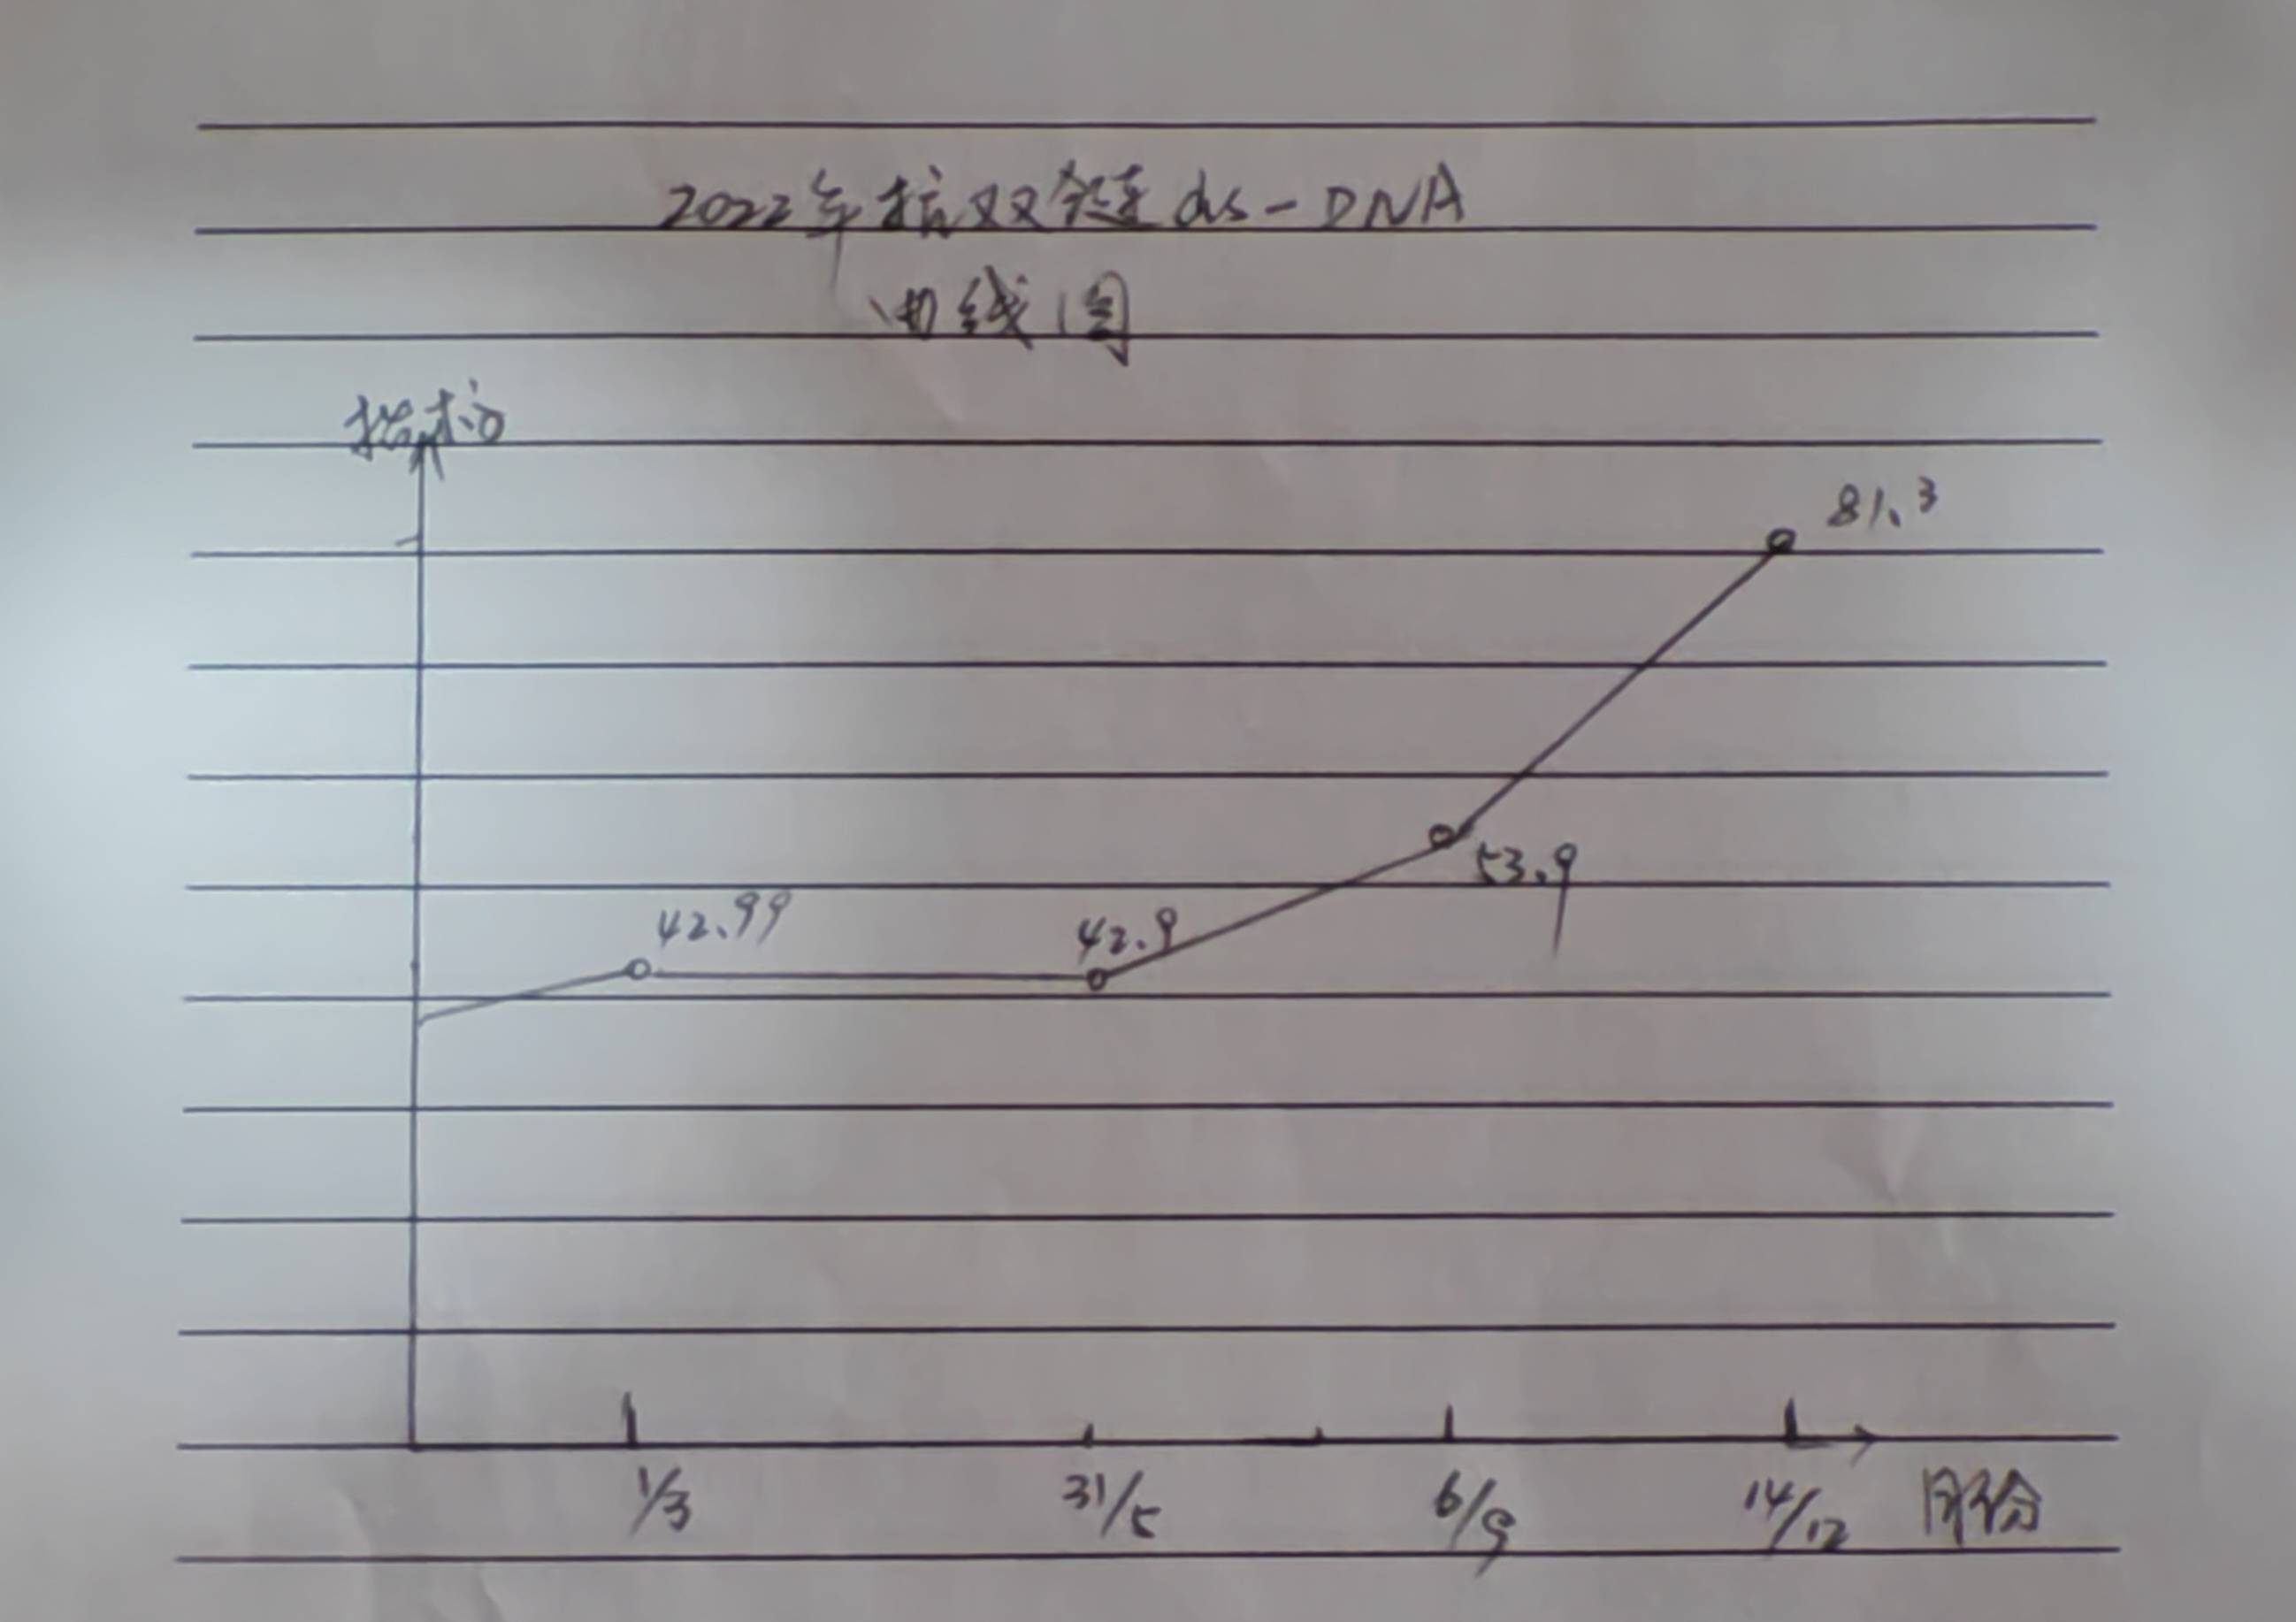 2022年抗双链ds-DNA
曲线图
指标
81.3
53.9
42.99
42.9
1/3
31/5
6/9
14/12
月份